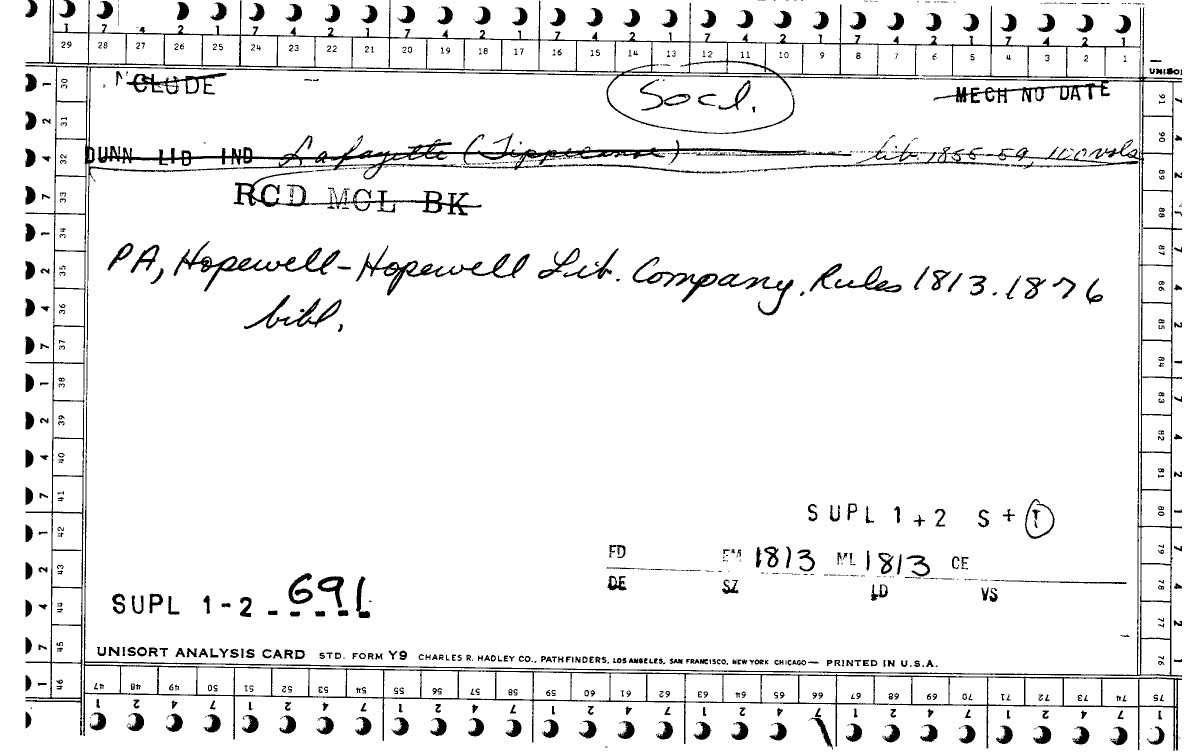 1 7 4 2 1 7 4 2 1 7 4 2 1 7 4 2 1 7 4 2 1 7 4 2 1 7 4 2 1
29 28 27 26 25 24 23 22 21 20 19 18 17 16 15 14 13 12 11 10 9 8 7 6 5 4 3 2 1
CLUDE
Socl.
MECH NO DATE
DUNN LIB IND Lafayette (Tippecanoe) lib 1855-59, 100 vols
RCD MCL BK
PA, Hopewell-Hopewell Lib. Company. Rules 1813. 1876
bibl.
SUPL 1+2 S + T
FD EM 1813 ML 1813 CE
DE SZ LD VS
SUPL 1-2 691
UNISORT ANALYSIS CARD STD. FORM Y9 CHARLES R. HADLEY CO., PATHFINDERS, LOS ANGELES, SAN FRANCISCO, NEW YORK CHICAGO — PRINTED IN U.S.A.
30 31 32 33 34 35 36 37 38 39 40 41 42 43 44 45 46
1 2 4 7 1 2 4 7 1 2 4 7 1 2 4 7 1
91 90 89 88 87 86 85 84 83 82 81 80 79 78 77 76
47 48 49 50 51 52 53 54 55 56 57 58 59 60 61 62 63 64 65 66 67 68 69 70 71 72 73 74 75
1 2 4 7 1 2 4 7 1 2 4 7 1 2 4 7 1 2 4 7 1 2 4 7 1 2 4 7 1